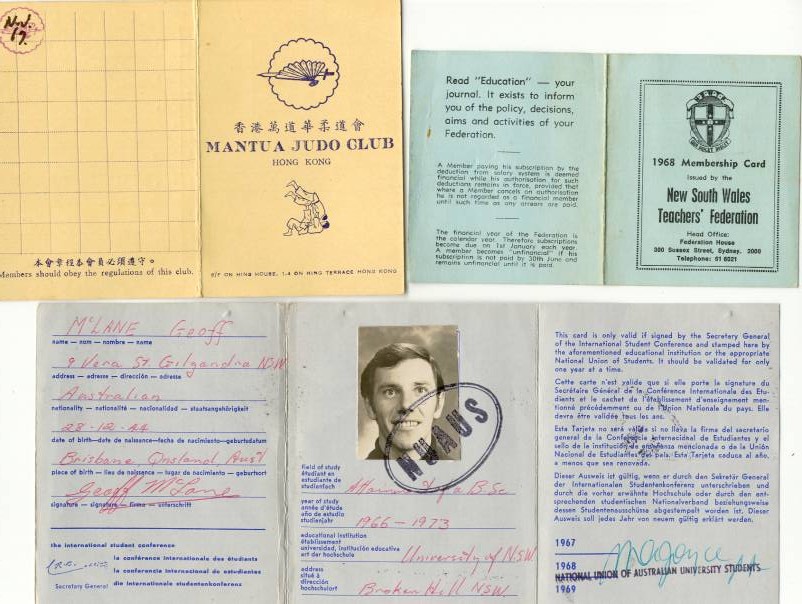 N.V.
17.
本會會程本會員必須遵守。
Members should obey the regulations of this club.
香港萬道華柔道會
MANTUA JUDO CLUB
HONG KONG
6/F ON HING HOUSE, 1-4 ON HING TERRACE HONG KONG
Read "Education" — your
journal. It exists to inform
you of the policy, decisions,
aims and activities of your
Federation.
A Member paying his subscription by the
deduction from salary system is deemed
financial while his authorisation for such
deductions remains in force, provided that
where a Member cancels an authorisation
he is not regarded as a financial member
until such time as any arrears are paid.
The financial year of the Federation is
the calendar year. Therefore subscriptions
become due on 1st January each year.
A member becomes "unfinancial" if his
subscription is not paid by 30th June and
remains unfinancial until it is paid.
1968 Membership Card
issued by the
New South Wales
Teachers' Federation
Head Office:
Federation House
300 Sussex Street, Sydney, 2000
Telephone: 61 6021
McLANE Geoff
name — nom — nombre — name
9 Vera St. Gilgandra NSW
address — adresse — dirección — adresse
Australian
nationality — nationalité — nacionalidad — staatsangehörigkeit
28-12-44
date of birth—date de naissance—fecha de nacimiento—geburtsdatum
Brisbane Qnsland Aust
place of birth — lieu de naissance — lugar de nacimiento — geburtsort
Geoff McLane
signature — signature — firma — unterschrift
the international student conference
la conférence internationale des étudiants
la conferencia internacional de estudiantes
Secretary General die internationale studentenkonferenz
NUAUS
field of study
étudiant en
estudiante de
studienfach
B.Sc
year of study
année d'étude
año de estudio
studienjahr
1966 — 1973
educational institution
établissement
universidad, institución educative
art der hochschule
University of NSW
address
situé à
dirección
hochschulort
Broken Hill NSW.
This card is only valid if signed by the Secretary General
of the International Student Conference and stamped here by
the aforementioned educational institution or the appropriate
National Union of Students. It should be validated for only
one year at a time.
Cette carte n'est valide que si elle porte la signature du
Secrétaire Général de la Conférence Internationale des Etu-
dients et le cachet de l'établissement d'enseignement men-
tionné précédemment ou de l'Union Nationale du pays. Elle
devra être validée tous les ans.
Esta Tarjeta no será válida si no lleva la firma del secretario
general de la Conferencia Internacional de Estudiantes y el
sello de la institución de enseñanza mencionada o de la Unión
Nacional de Estudiantes del país. Esta Tarjeta caduca al año,
a menos que sea renovada.
Dieser Ausweis ist gültig, wenn er durch den Sekretär General
der Internationalen Studentenkonferenz unterschrieben und
durch die vorher erwähnte Hochschule oder durch den ent-
sprechenden studentischen Nationalverband beziehungsweise
dessen Studentenausschüsse abgestempelt worden ist. Dieser
Ausweis soll jedes Jahr von neuem gültig erklärt werden.
1967
1968
NATIONAL UNION OF AUSTRALIAN UNIVERSITY STUDENTS
1969